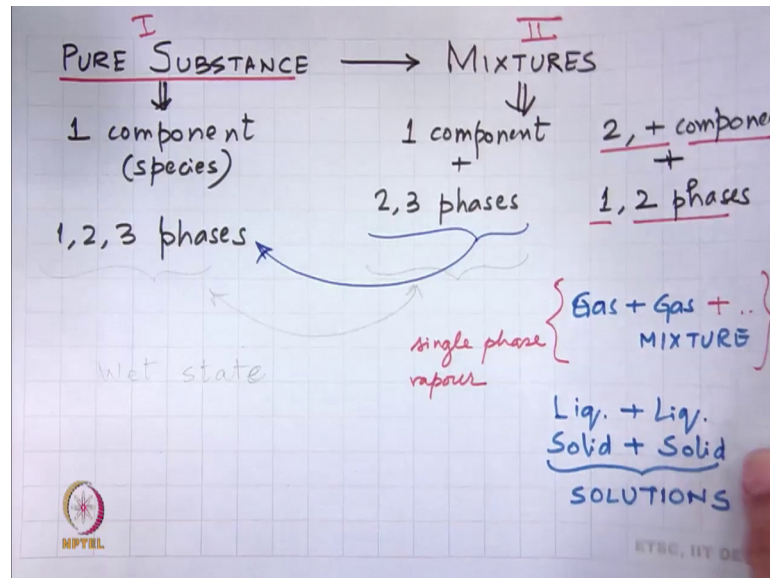 I
PURE SUBSTANCE → MIXTURES
II
1 component
(species)
1,2,3 phases
1 component
+
2,3 phases
2, + compone
+
1, 2 phases
Wet state
single phase
vapour
Gas + Gas + ..
MIXTURE
Liq. + Liq.
Solid + Solid
SOLUTIONS
NPTEL
ETSC, IIT DE